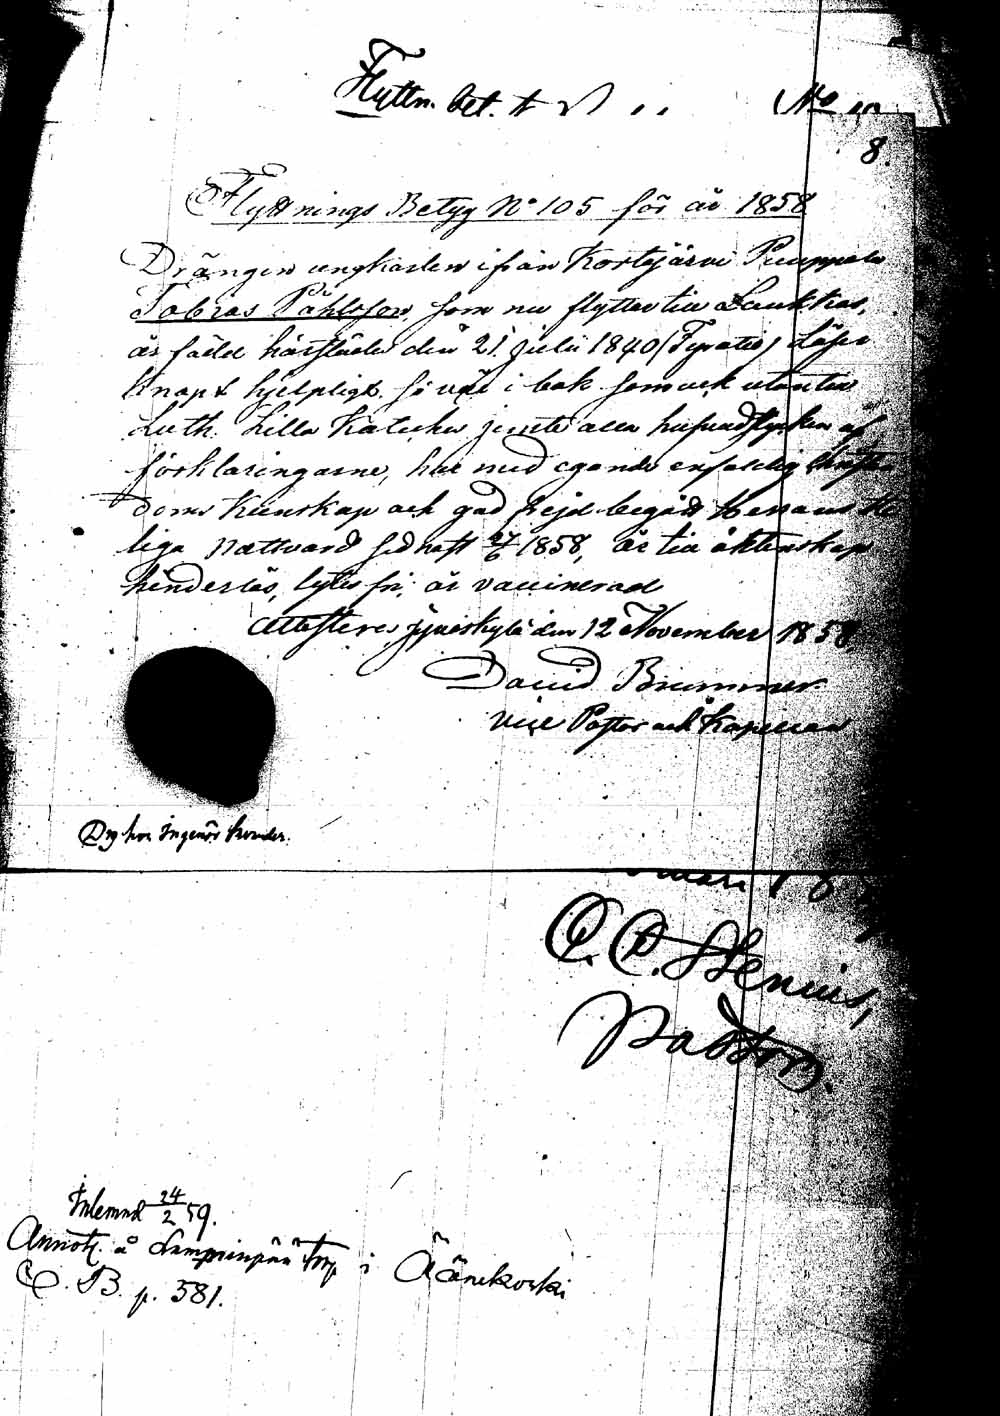 Flyttn. bet. N
No
8.
Flyttnings Betyg No 105 för år 1858
Drängen ungkarlen ifrån Kortejärvi Puuppola
Tobias Påhlsson, som nu flyttar till Laukkas,
är född härstädes den 21 Julii 1840 Läser
knapt hjelpligt så väl i bok som ock utantill
Luth. Lilla Kateches jemte alla hufvudstycken af
förklaringarne, har med egande enfaldig Christen
doms kunskap och god frejd begått Herrans He
liga Nattvard sednast 27/6 1858, är till äktenskap
hinderlös, lytes fri, är vaccinerad
Attesteres Jyväskylä den 12 November 1858.
David Brummer.
vice Pastor och Kapellan
Drg hos Ingenör
C. Stenius,
Pastor.
Inlemnd 24/2 59.
Annot. å Lamminpää Torp i Äänekoski
C. B. p. 581.